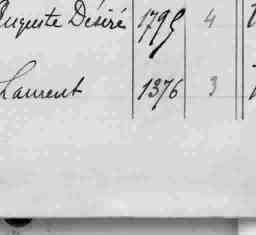 Auguste Désiré 1795 4
Laurent 1376 3